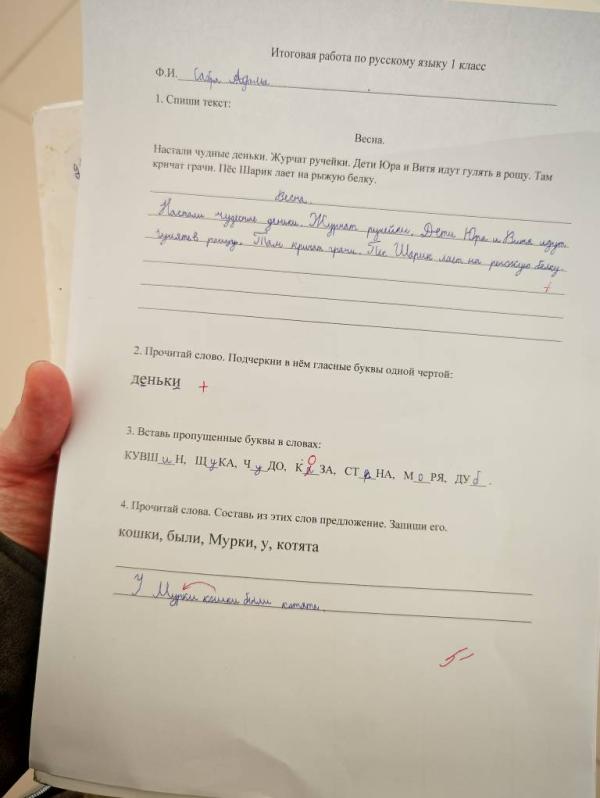 Итоговая работа по русскому языку 1 класс
Ф.И. Сабра Адама
1. Спиши текст:
Весна.
Настали чудные деньки. Журчат ручейки. Дети Юра и Витя идут гулять в рощу. Там
кричат грачи. Пёс Шарик лает на рыжую белку.
Весна.
Настали деньки. Журчат ручейки. Дети Юра и Витя идут
в рощу. Там кричат грачи. Пёс Шарик лает на рыжую белку.
+
2. Прочитай слово. Подчеркни в нём гласные буквы одной чертой:
деньки +
3. Вставь пропущенные буквы в словах:
О
КУВШ и Н, Щ у КА, Ч у ДО, К ЗА, СТ е НА, М о РЯ, ДУ б .
4. Прочитай слова. Составь из этих слов предложение. Запиши его.
кошки, были, Мурки, у, котята
У Мурки кошки были котята.
5-